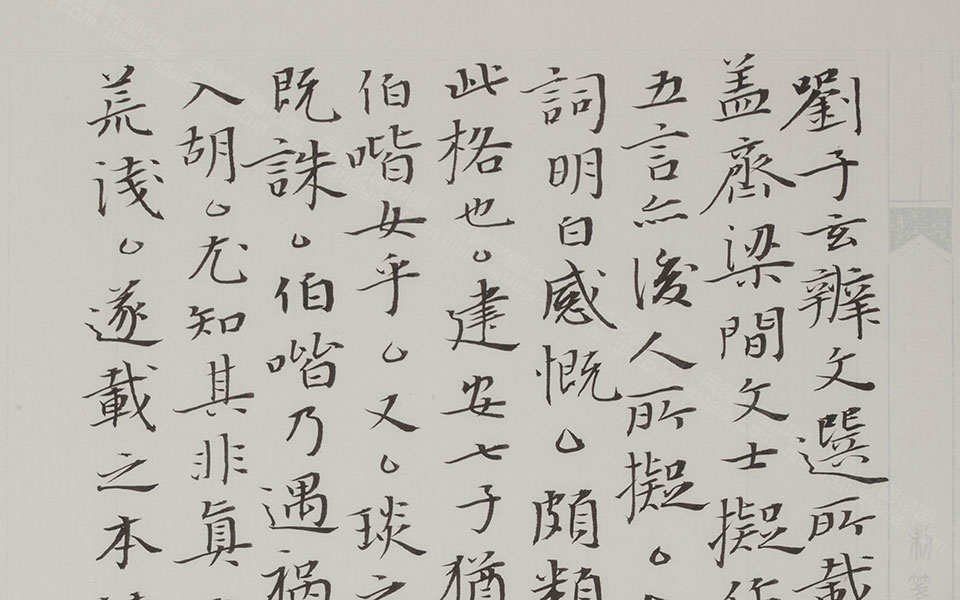 劉子玄辨文選所載
盖齊梁間文士擬作
五言亦後人所擬。
詞明白感慨。頗類
此格也。建安七子猶
伯喈女乎。又。琰之
既誅。伯喈乃遇祸
入胡。尤知其非真
荒淺。遂載之本